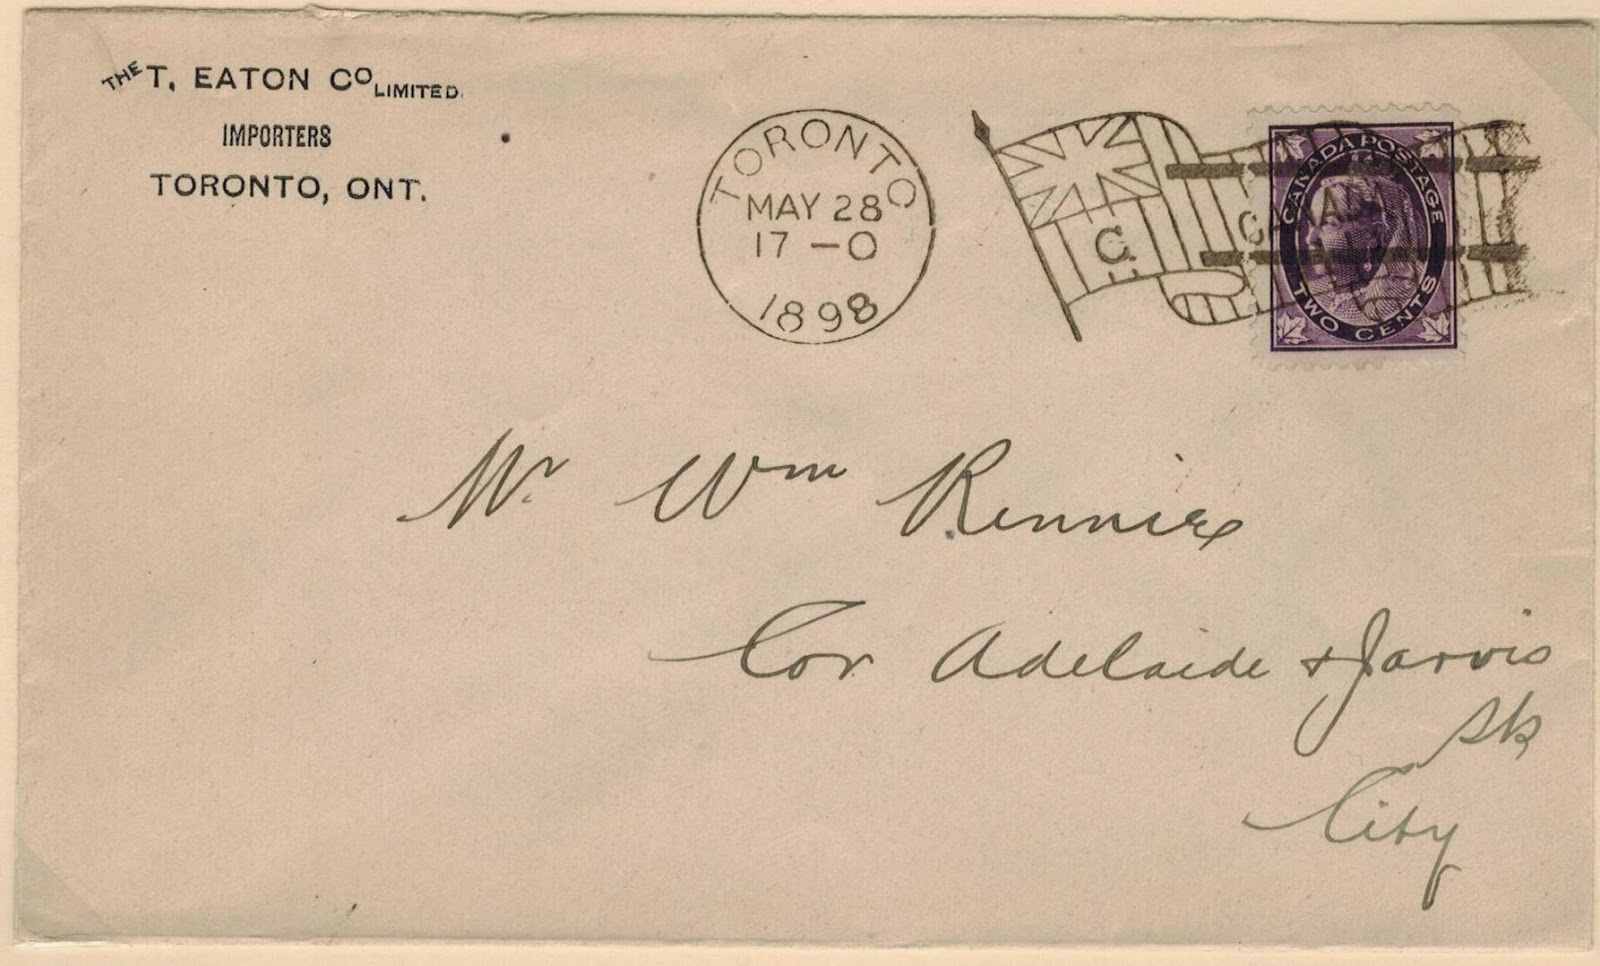 THE T. EATON CO LIMITED.
IMPORTERS
TORONTO, ONT.
TORONTO
MAY 28
17 - 0
1898
C.
CANADA
CANADA POSTAGE
TWO CENTS
Mr Wm Rennie
Cor Adelaide & Jarvis
Sts
City